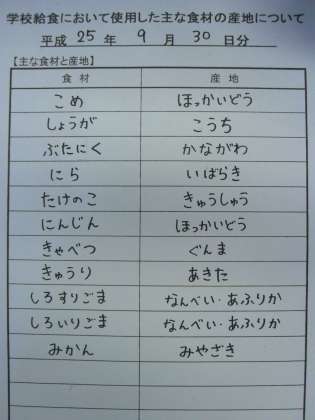 学校給食において使用した主な食材の産地について
平成 25 年 9 月 30 日分
【主な食材と産地】
食材 産地
こめ ほっかいどう
しょうが こうち
ぶたにく かながわ
にら いばらき
たけのこ きゅうしゅう
にんじん ほっかいどう
きゃべつ ぐんま
きゅうり あきた
しろすりごま なんべい・あふりか
しろいりごま なんべい・あふりか
みかん みやざき